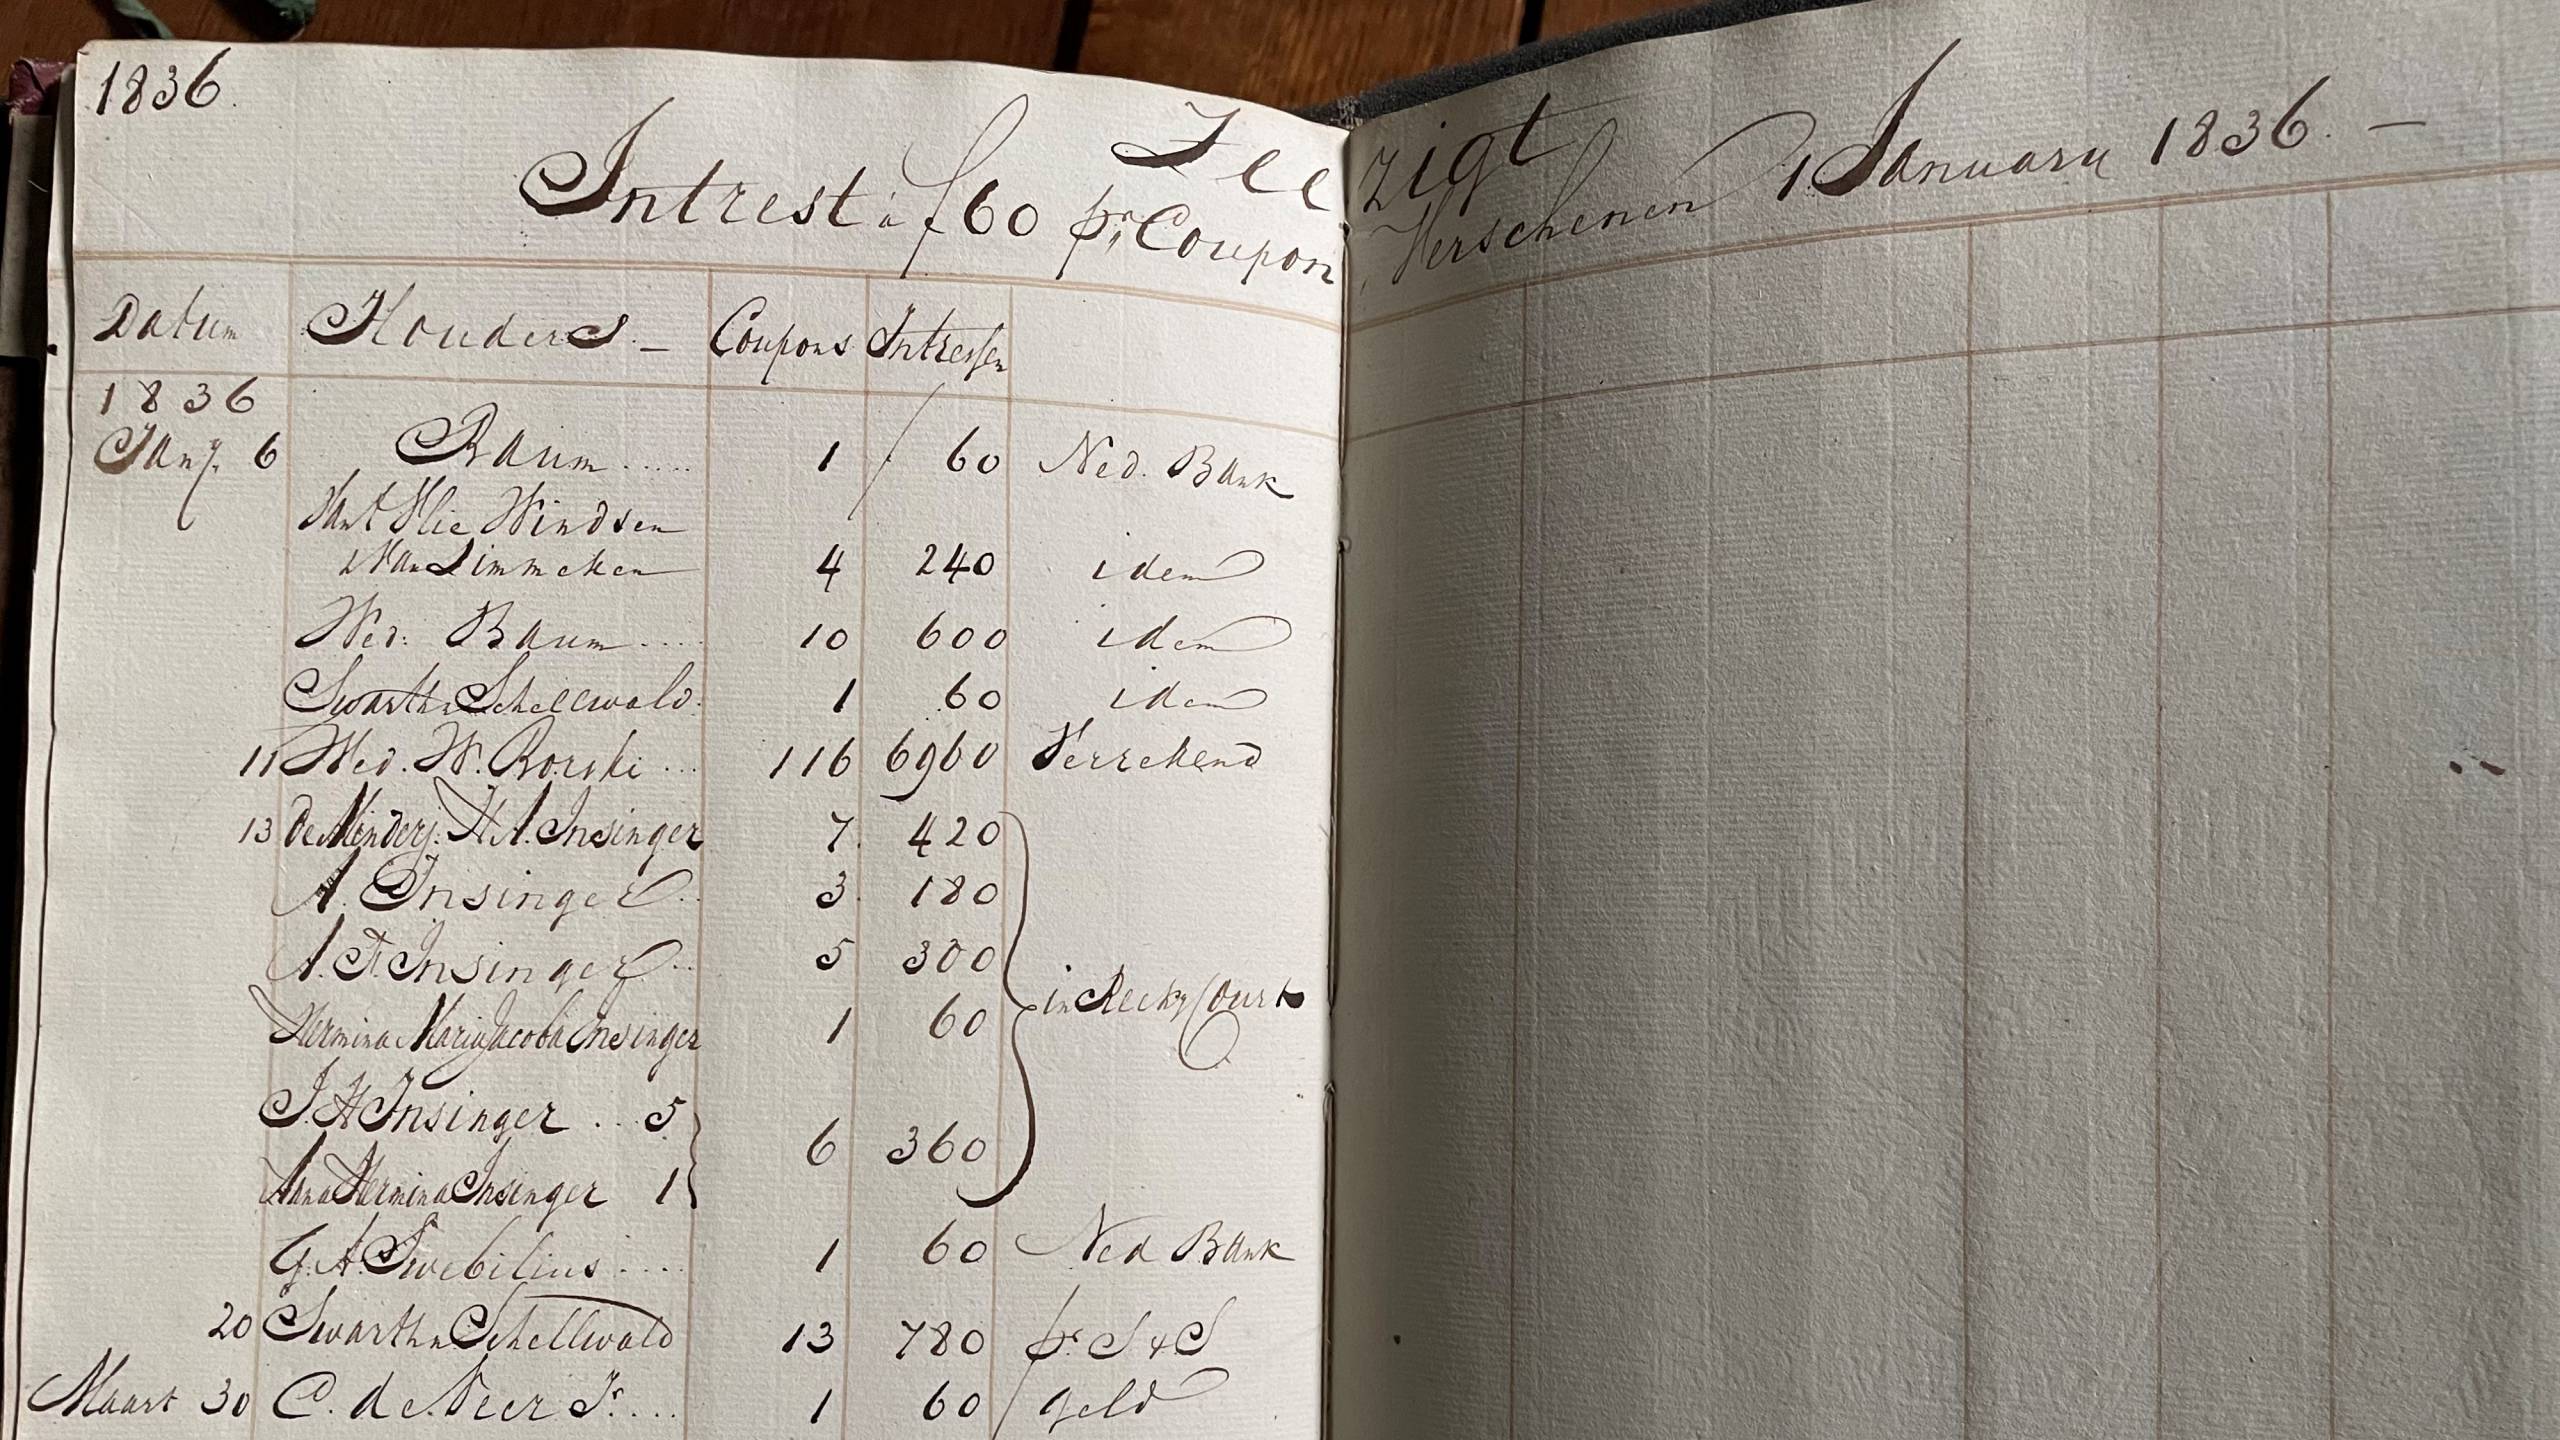 1836.
Zeezigt
Intrest à f 60 pr. Coupon, Verschenen 1 January 1836. —
Datum Houders — Coupons Intressen
1836
Jany. 6 Baum ..... 1 f 60 Ned. Bank
Van Limmeken 4 240 idem
Wed. Baum .... 10 600 idem
Swarth & Schellwald. 1 60 idem
11 Wed. W. Borski ... 116 6960 Verrekend
13 de Minderj. H A. Insinger 7. 420
A. Insinger .. 3. 180
A. F. Insinger .. 5 300
in Reckg Court
Hermina Maria Jacoba Insinger 1 60
J H Insinger ... 5
6 360
Anna Hermina Insinger 1
G. A. Swebilius .... 1 60 Ned Bank
20 Swarth & Schellwald 13 780 pr. S & S
Maart 30 C. de Veer Jr. ... 1 60 geld